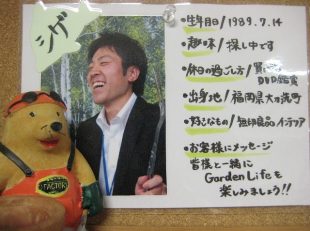 シゲ
・生年月日/1989.7.14
・趣味/探し中です
・休日の過ごし方/買い
DVD鑑賞
・出身地/福岡県大刀洗町
・好きなもの/無印良品 インテリア
・お客様にメッセージ
皆様と一緒に
Garden Lifeを
楽しみましょう!!
FACTORY